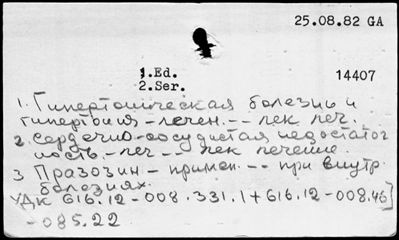 25.08.82 GA
1.Ed.
2.Ser.
14407
1. Гипертоническая болезнь и
гипертония - лечен. -- лек леч.
2. Сердечно-сосудистая недостаточ
ность - леч -- лек лечение.
3 Празозин - примен. -- при внутр.
болезнях.
УДК 616.12-008.331.1+616.12-008.46]
-085.22